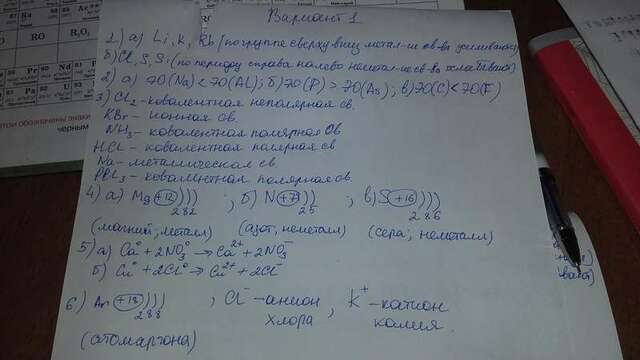 Вариант 1
1) а) Li, K, Rb (по группе сверху вниз метал-ие св-ва усиливаются)
б) Cl, S, Si (по периоду справа налево неметал-ие св-ва ослабевают)
2) а) ЭО(Na) < ЭО(AL); б) ЭО(P) > ЭО(As); в) ЭО(C) < ЭО(F)
3) CL2 - ковалентная неполярная св.
KBr - ионная св.
NH3 - ковалентная полярная св
HCL - ковалентная полярная св
Na - металлическая св.
PCL3 - ковалентная полярная св.
4) а) Mg +12 ))) 2 8 2 ; б) N +7 )) 2 5 ; в) S +16 ))) 2 8 6
(магний; металл) (азот; неметалл) (сера; неметалл)
5) а) Ca⁰ + 2NO3⁰ → Ca²⁺ + 2NO3⁻
б) Cu⁰ + 2Cl⁰ → Cu²⁺ + 2Cl⁻
6) Ar +18 ))) 2 8 8 ; Cl⁻ - анион хлора , K⁺ - катион калия.
(атом аргона)
RO
R₂O₇
Ra
Pr
Nd
U
черным